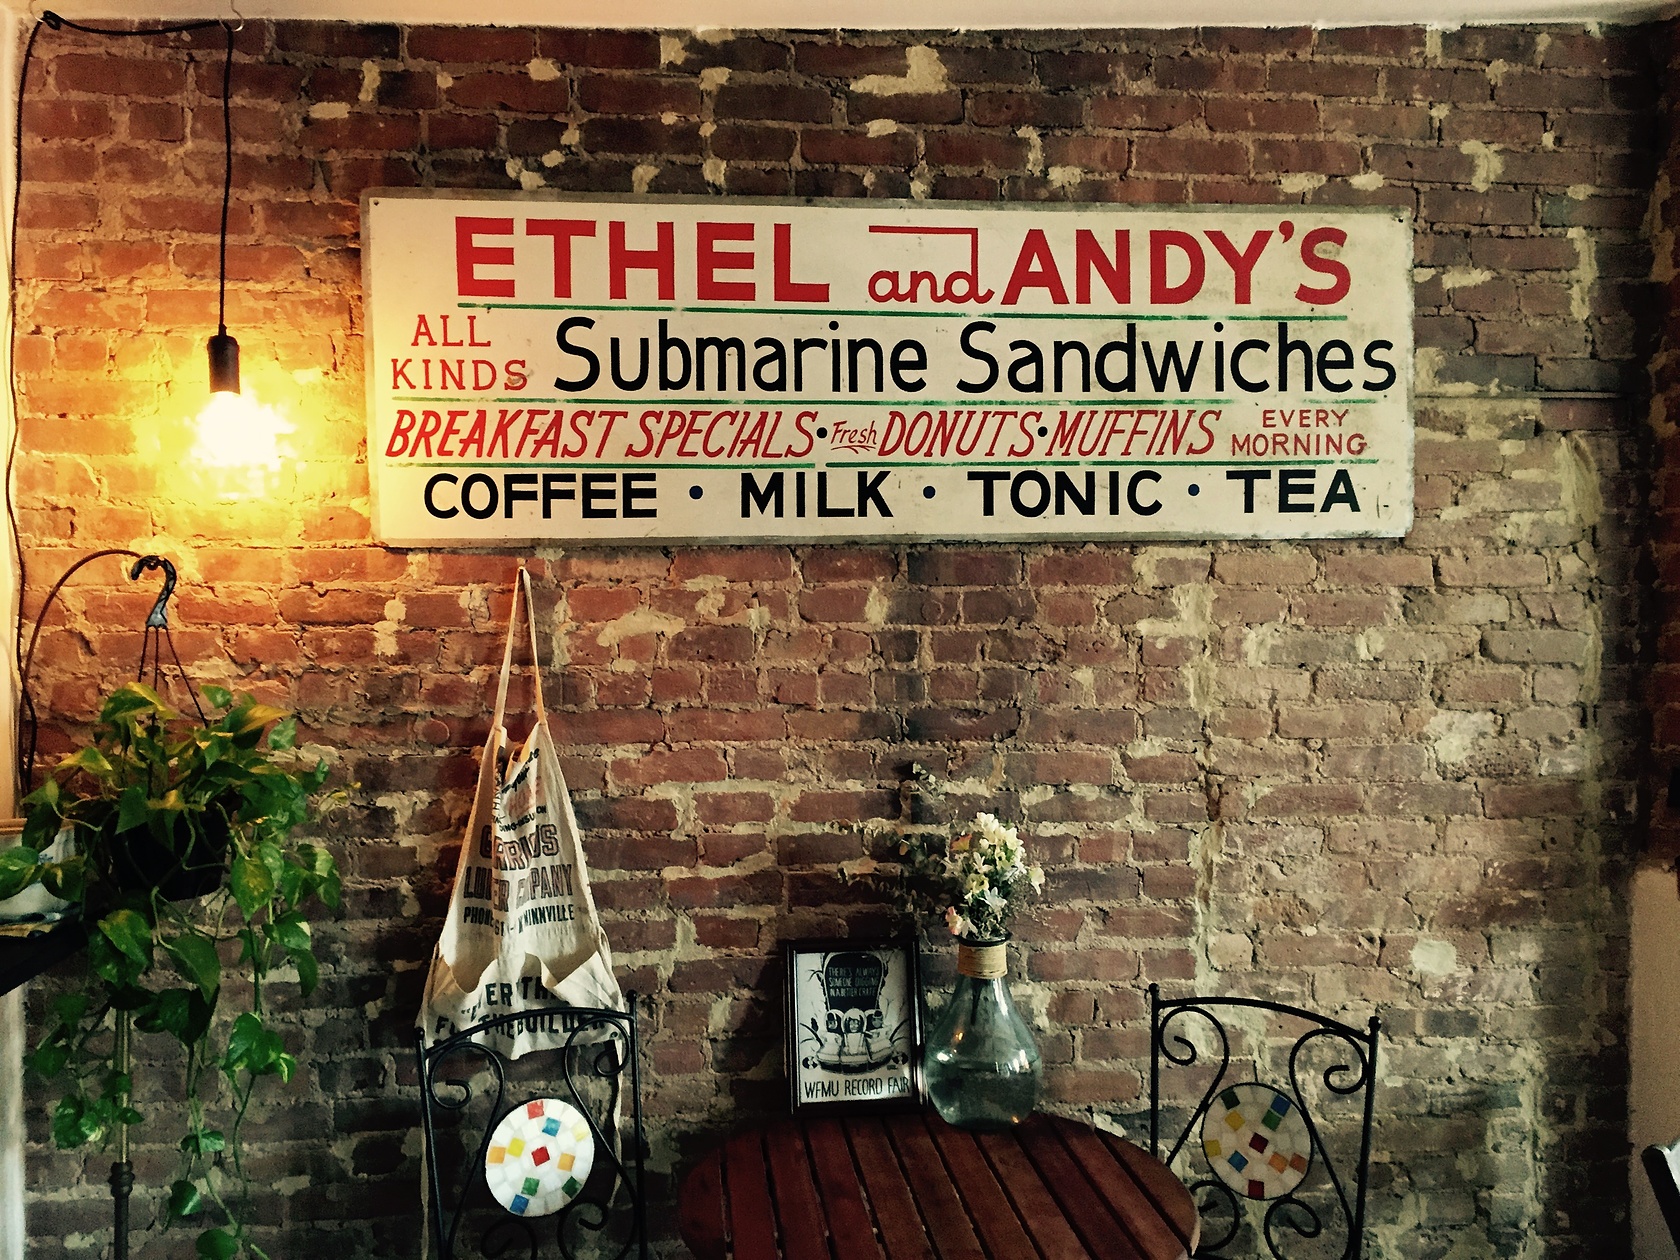 ETHEL and ANDY'S
ALL KINDS Submarine Sandwiches
BREAKFAST SPECIALS • Fresh DONUTS • MUFFINS EVERY MORNING
COFFEE • MILK • TONIC • TEA
COMPANY
FOR THE BUILDER
THERE'S ALWAYS
SOMEONE DIGGING
IN A BETTER CRATE
WFMU RECORD FAIR